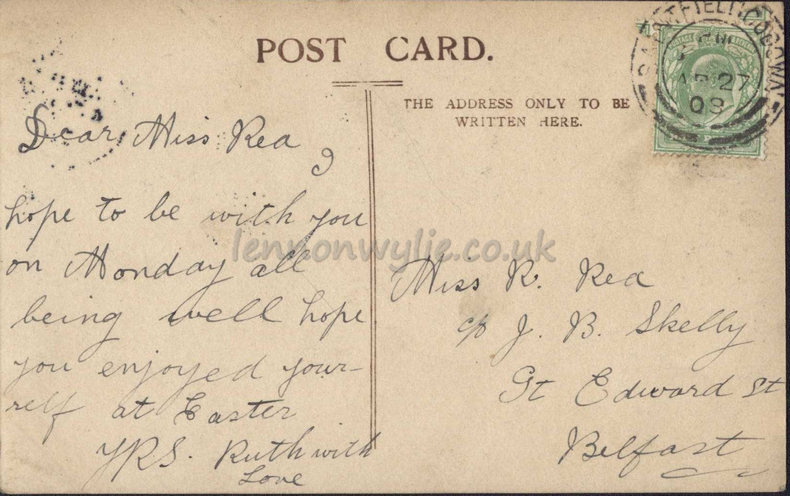 POST CARD.
THE ADDRESS ONLY TO BE
WRITTEN HERE.
Dear Miss Rea
I
hope to be with you
on Monday all
being well hope
you enjoyed your-
self at Easter
YRS. Ruth with
Love
Miss R. Rea
c/o J. B. Skelly
Gt Edward St
Belfast
AP 27
08
lennonwylie.co.uk